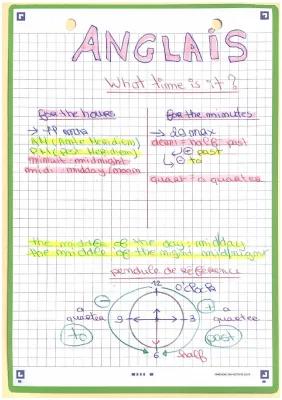 ANGLAIS
What time is it ?
for the hours
for the minutes
→ 12 max
→ 29 max
AM (Ante Meridiem)
demi = half past
PM (Post Meridiem)
↳ + past
minuit : midnight
↳ - to
midi : midday / noon
quart = a quarter
the middle of the day : midday
the middle of the night : midnight
pendule de référence
12 o'clock
-
+
a quarter
9
3
a quarter
to
past
6
half